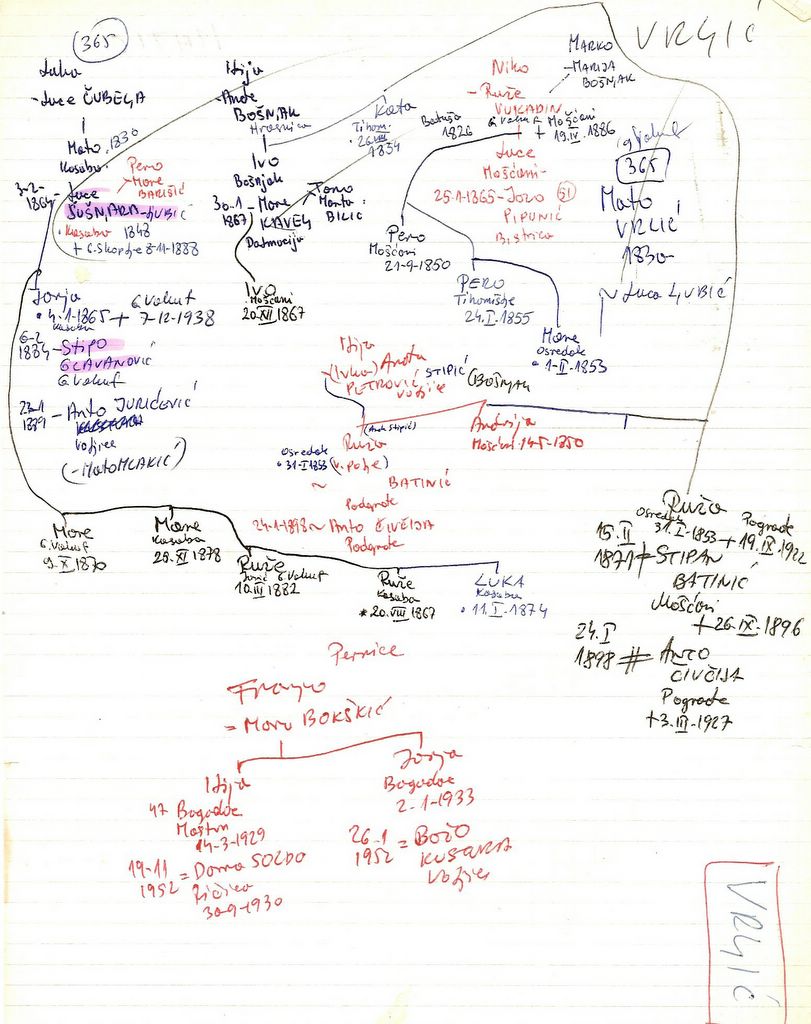 365
VRLJIĆ
Luka
- Luce ČUBELJA
Mato 1830
Kasaba
3-2-
1864
Luce
SUŠNJARA - LJUBIĆ
Kasaba 1848
+ G. Skoplje 8-11-1888
Pero
More
BARIŠIĆ
Ilija
- Ande
BOŠNJAK
Hrasnica
Ivo
Bošnjak
30-1
1867
- More
KAVELJ
Dalmacija
Tomo
Manta
BILIĆ
IVO
Mošćani
20-XII 1867
Kata
Tihom.
26-VIII
1834
Niko
- Ruže
VUKADIN
G. Vakuf
Batuša
1826
+ Mošćani
19.IV-1886
MARKO
- MARIJA
BOŠNJAK
Luce
Mošćani-
25-1-1865 - Jozo 51
PIPUNIĆ
Bistrica
G. Vakuf
365
Mato
VRLIĆ
1830-
~ Luca LJUBIĆ
Pero
Mošćani
21-9-1850
PERO
Tihomišlje
24.I-1855
More
Osredak
1-II-1853
Jozja
4-1-1865
Kasaba
G Vakuf
+ 7-12-1938
6-2
1884 - Stipo
GLAVANOVIĆ
G Vakuf
23-1
1889 - Anto JURIČEVIĆ
Voljice
(- Mato MLAKIĆ)
Ilija
- (Ivka) Anđa
PETROVIĆ
STIPIĆ
Voljice
(BOŠNJAK
(Anđa Stipić)
Andrija
Mošćani 14-5-1850
Ruža
Osredak
31-I-1853
(V. polje)
~ BATINIĆ
Podgrađe
24-1-1898 ~ Anto ČIVČIJA
Podgrađe
More
G. Vakuf
9-X-1870
More
Kasaba
28-XI 1878
Ruže
G Vakuf
10.III 1882
Ruže
Kasaba
* 20.VIII 1867
LUKA
Kasaba
11.I-1874
Ruža
Osredak
31.I-1853
Pograđe
+ 19.IX-1922
15.II
1871 # STIPAN
BATINIĆ
Mošćani
+ 26-IX-1896
24.I
1898 # ANTO
ČIVČIJA
Pograđe
+ 3.III-1927
Pernice
Franjo
= Mara BOKŠKIĆ
Ilija
47 Bogodoe
Maštin
14-3-1929
19-11
1952 = Dama SOLDO
Ričica
30-9-1930
Jozja
Bogodoe
2-1-1933
26-1
1952 = BOŽO
KUSARA
Voljice
VRLJIĆ